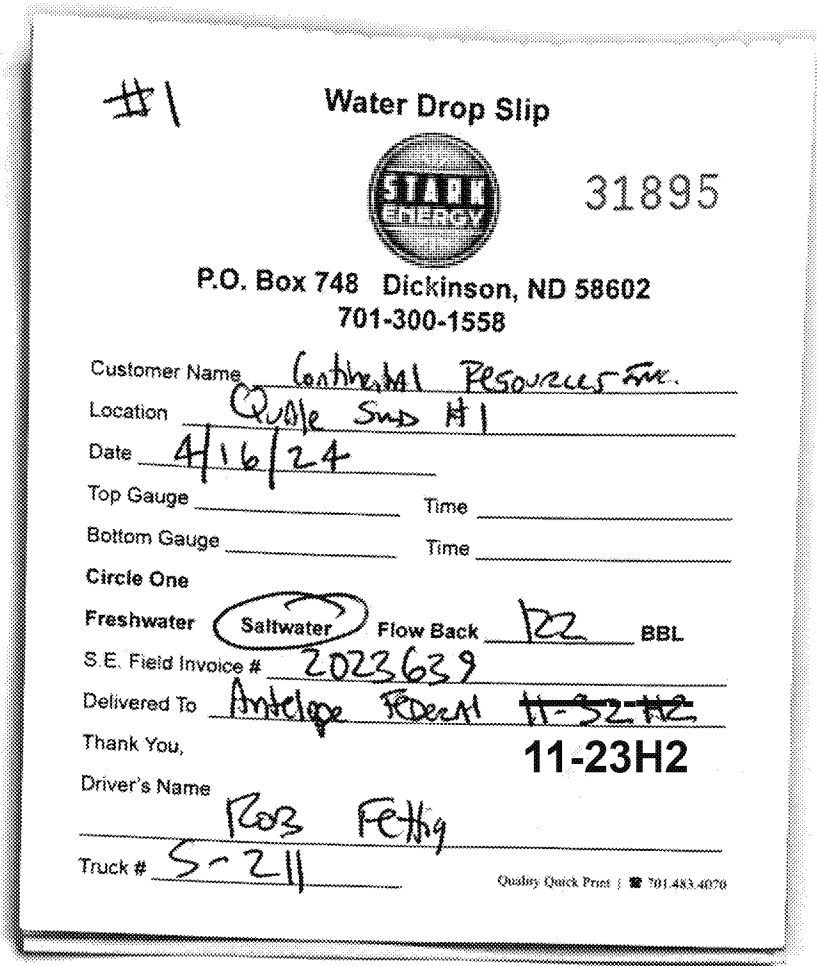 #1
Water Drop Slip
STARK
ENERGY
31895
P.O. Box 748 Dickinson, ND 58602
701-300-1558
Customer Name Continental Resources Inc.
Location Quale SWD #1
Date 4/16/24
Top Gauge Time
Bottom Gauge Time
Circle One
Freshwater Saltwater Flow Back 122 BBL
S.E. Field Invoice # 2023639
Delivered To Antelope Federal 11-32-H2
Thank You, 11-23H2
Driver's Name
Rob Fettig
Truck # S-211
Quality Quick Print | ☎ 701.483.4070